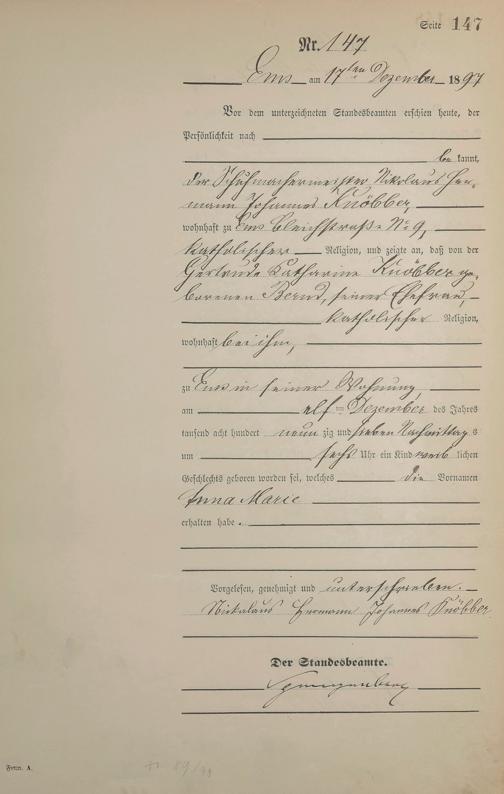 Seite 147
Nr. 147
Ems am 17ten Dezember 1897
Vor dem unterzeichneten Standesbeamten erschien heute, der
Persönlichkeit nach
be kannt,
der Schuhmachermeister Nikolaus Her-
mann Johannes Knöbber
wohnhaft zu Ems Bleichstraße No 9,
katholischer Religion, und zeigte an, daß von der
Gertrude Catharine Knöbber ge-
borenen Bernd, seiner Ehefrau,
katholischer Religion,
wohnhaft bei ihm,
zu Ems in seiner Wohnung
am elf = Dezember des Jahres
tausend acht hundert neun zig und sieben Nachmittag s
um sechs Uhr ein Kind weib lichen
Geschlechts geboren worden sei, welches die Vornamen
Anna Marie
erhalten habe.
Vorgelesen, genehmigt und unterschrieben.
Nikolaus Hermann Johannes Knöbber
Der Standesbeamte.
Spangenberg
Form. A.